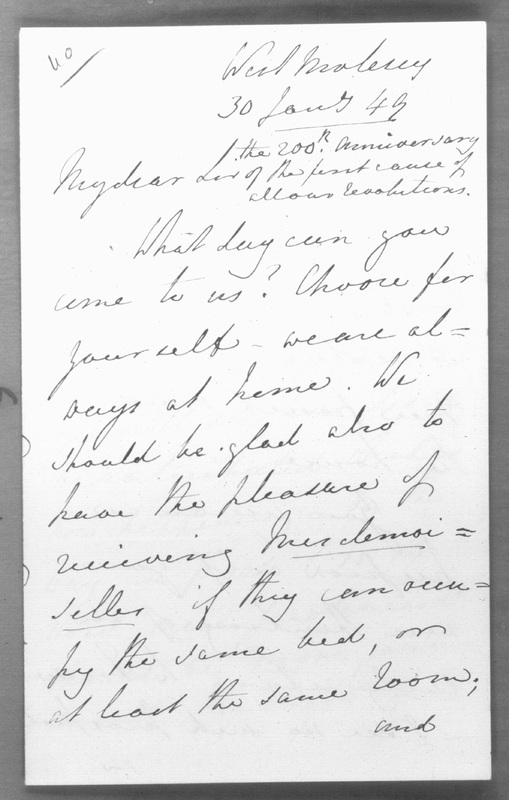 40
West Molesey
30 Jany 49
the 200th anniversary
of the first cause of
all our revolutions.
My dear Sir
What day can you
come to us? Choose for
yourself – we are al=
ways at home. We
should be glad also to
have the pleasure of
receiving Mesdemoi=
selles if they can occu=
py the same bed, or
at least the same room;
and